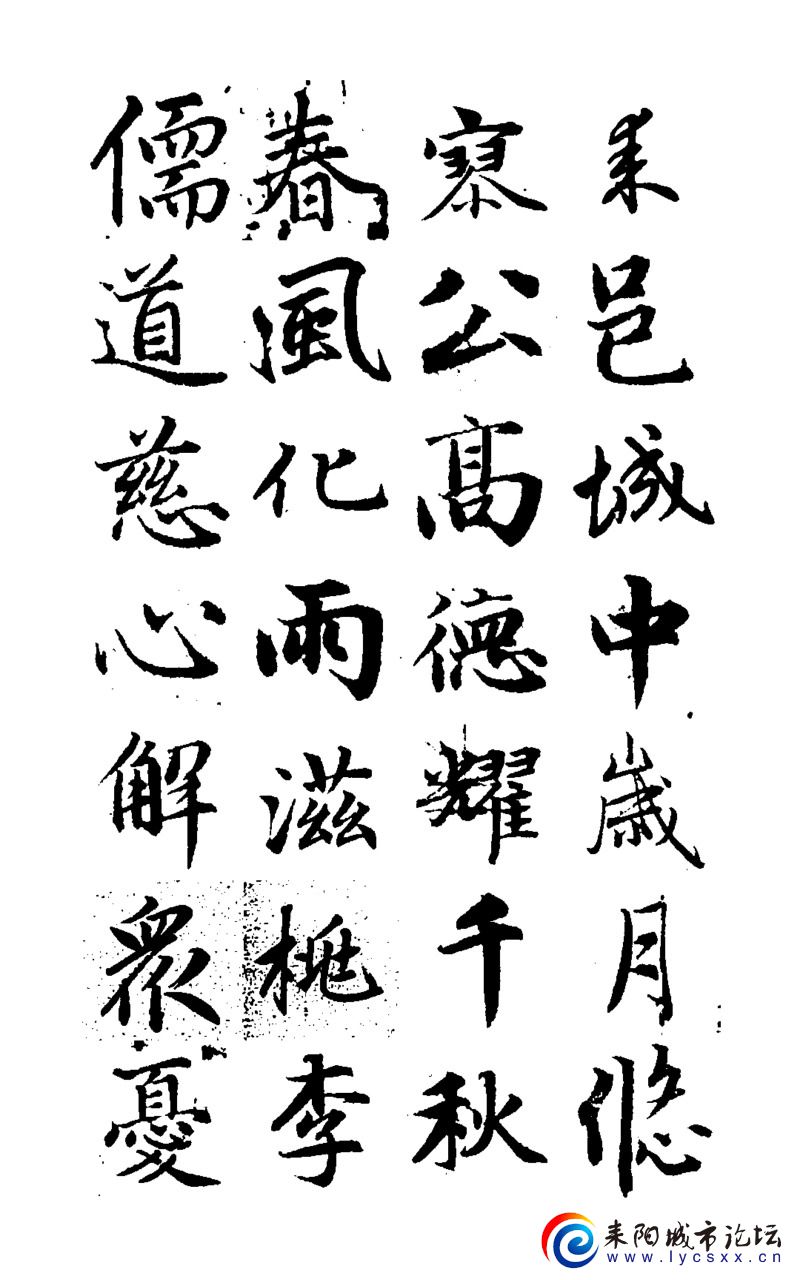 耒邑城中歲月悠
公高德耀千秋
春風化雨滋桃李
儒道慈心解眾憂
耒阳城市论坛
www.lycsxx.cn